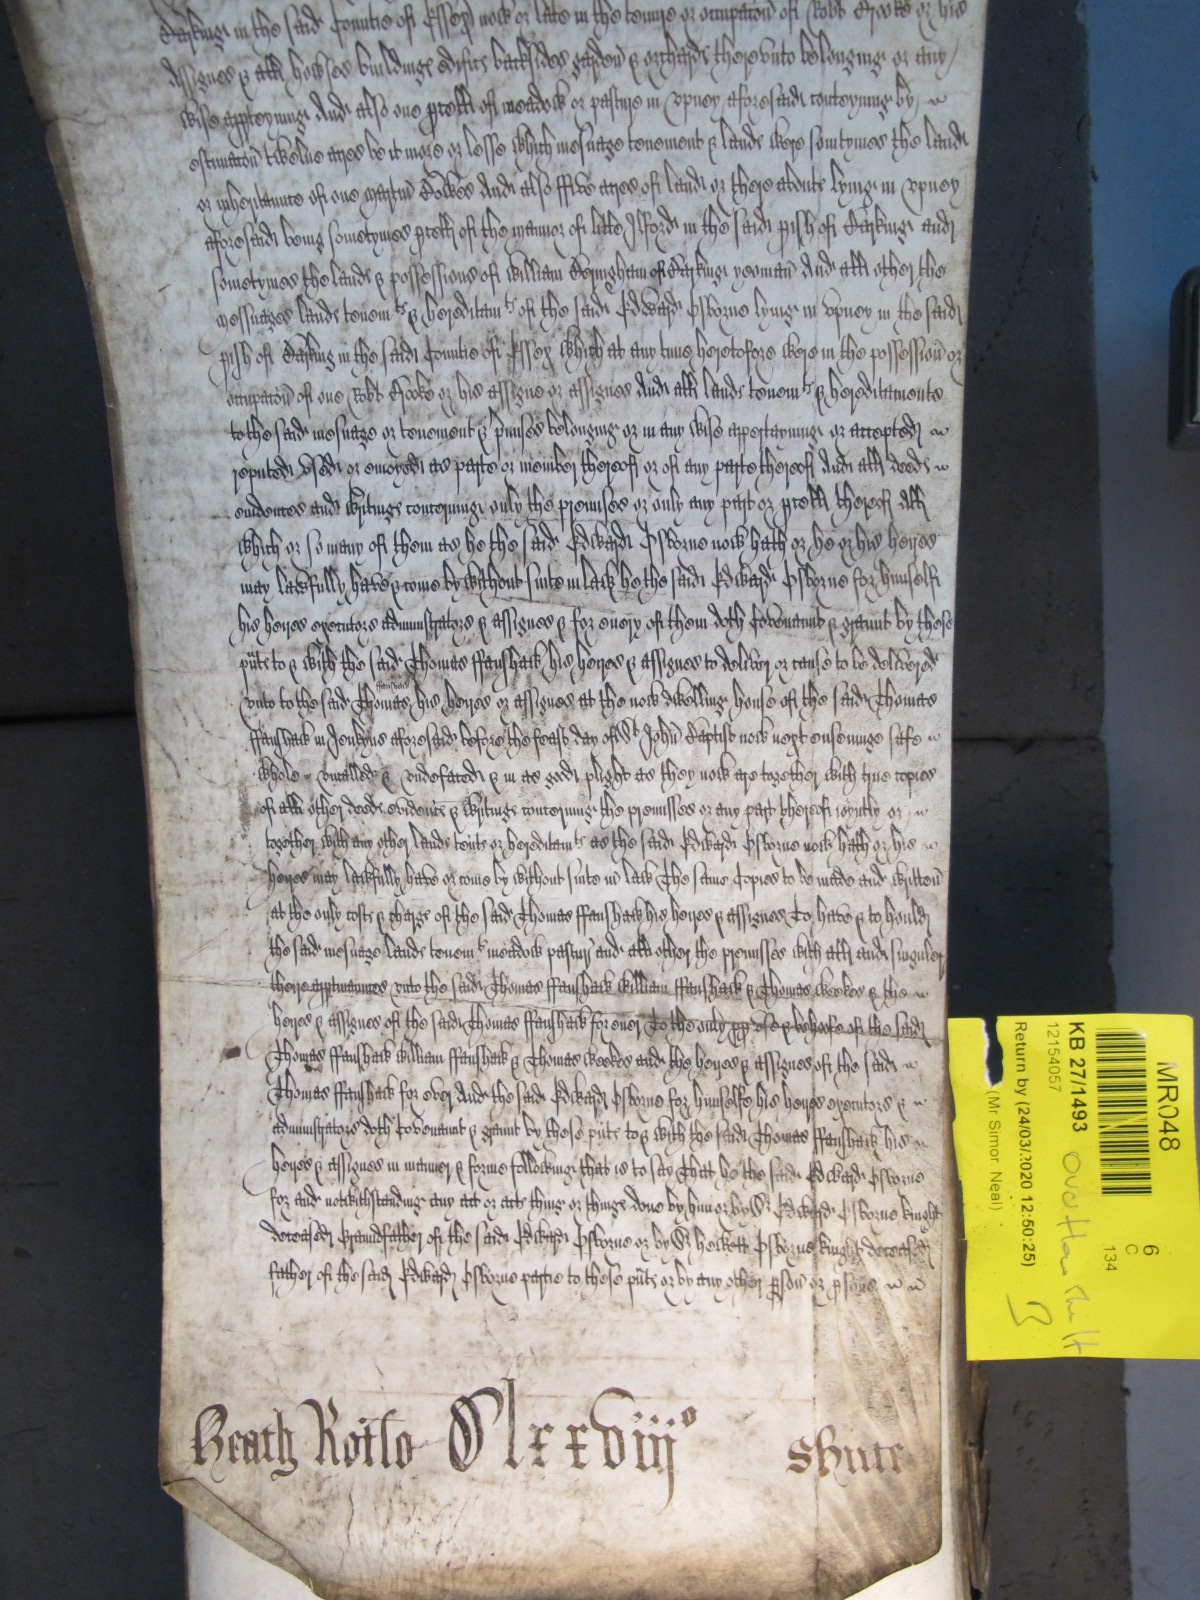 Barking in the said Countie of Essex now or late in the tenure or occupacon of Robt Brooke or his
Assignes & all howses buildinge edifices backsides gardens & orchards therevnto belonging or any
wise apperteyning And also one pcell of meadow or pasture in Vpney aforesaid conteyning by
estimacon twelve acres be it more or lesse which mesuage tenement & lands were somtymes the land
or inheritance of one Martin Bowes And also ffive acres of land or there abouts lying in Vpney
aforesaid being sometymes pcell of the mannor of litle Ilford in the said pish of Barking and
sometymes the lands & possessions of William Beringham of Barking yeoman And all other the
messuages lands tenemts & hereditamts of the said Edward Osborne lying in Vpney in the said
pish of Barking in the said Countie of Essex which at any tyme heretofore were in the possession or
occupacon of one Robt Brooke or his assigne or assignes And all lands tenemts & hereditaments
to the said mesuage or tenement & pmises belonging or in any wise apperteyning or accepted
reputed vsed or enioyed as parte or member thereof or of any parte thereof And all deeds
evidences and writings concerning only the premises or only any part or pcell thereof All
which or so many of them as he the said Edward Osborne now hath or he or his heyres
may lawfully have & come by without suite in law he the said Edward Osborne for himself
his heyres executors administrators & assignes & for every of them doth Covenannt & graunt by these
pnts to & with the said Thomas ffanshaw his heyres & assignes to deliver or cause to be delivered
vnto to the said Thomas ffanshaw his heyres or assignes at the now dwelling house of the said Thomas
ffanshaw in Jenkyns aforesaid before the feast day of St John Baptist now next ensueinge safe
whole vncancelled & vndefaced & in as good plight as they now are together with true copies
of all other deeds evidents & writings concerning the premisses or any part thereof ioyntly or
together with any other lands tents or hereditamts as the said Edward Osborne now hath or his
heyres may lawfully have or come by without suite in law The same Copies to be made and written
at the only costs & charge of the said Thomas ffanshaw his heyres & assignes To have & to hould
the said mesuage lands tenemts meadow pasture and all other the premisses with all and singuler
there apptinances vnto the said Thomas ffanshaw William ffanshaw & Thomas Weekes & the
heyres & assignes of the said Thomas ffanshaw for ever To the only ppr vse & behoofe of the said
Thomas ffanshaw William ffanshaw & Thomas Weekes and the heyres & assignes of the said
Thomas ffanshaw for ever And the said Edward Osborne for himselfe his heyres executors &
administrators doth Covenant & graunt by these pnts to & with the said Thomas ffanshaw his
heyres & assignes in manner & forme following that is to say That he the said Edward Osborne
for and notwithstanding any act or acts thing or things done by him or by Sr Edward Osborne knight
deceased Grandfather of the said Edward Osborne or by Sr Hewett Osborne knight deceased
father of the said Edward Osborne partie to these pnts or by any other pson or psons
Heath Rotlo Clxxviijo Shute
MR048
6
C
134
KB 27/1493
12154057
Return by (24/03/2020 12:50:25)
(Mr Simon Neal)